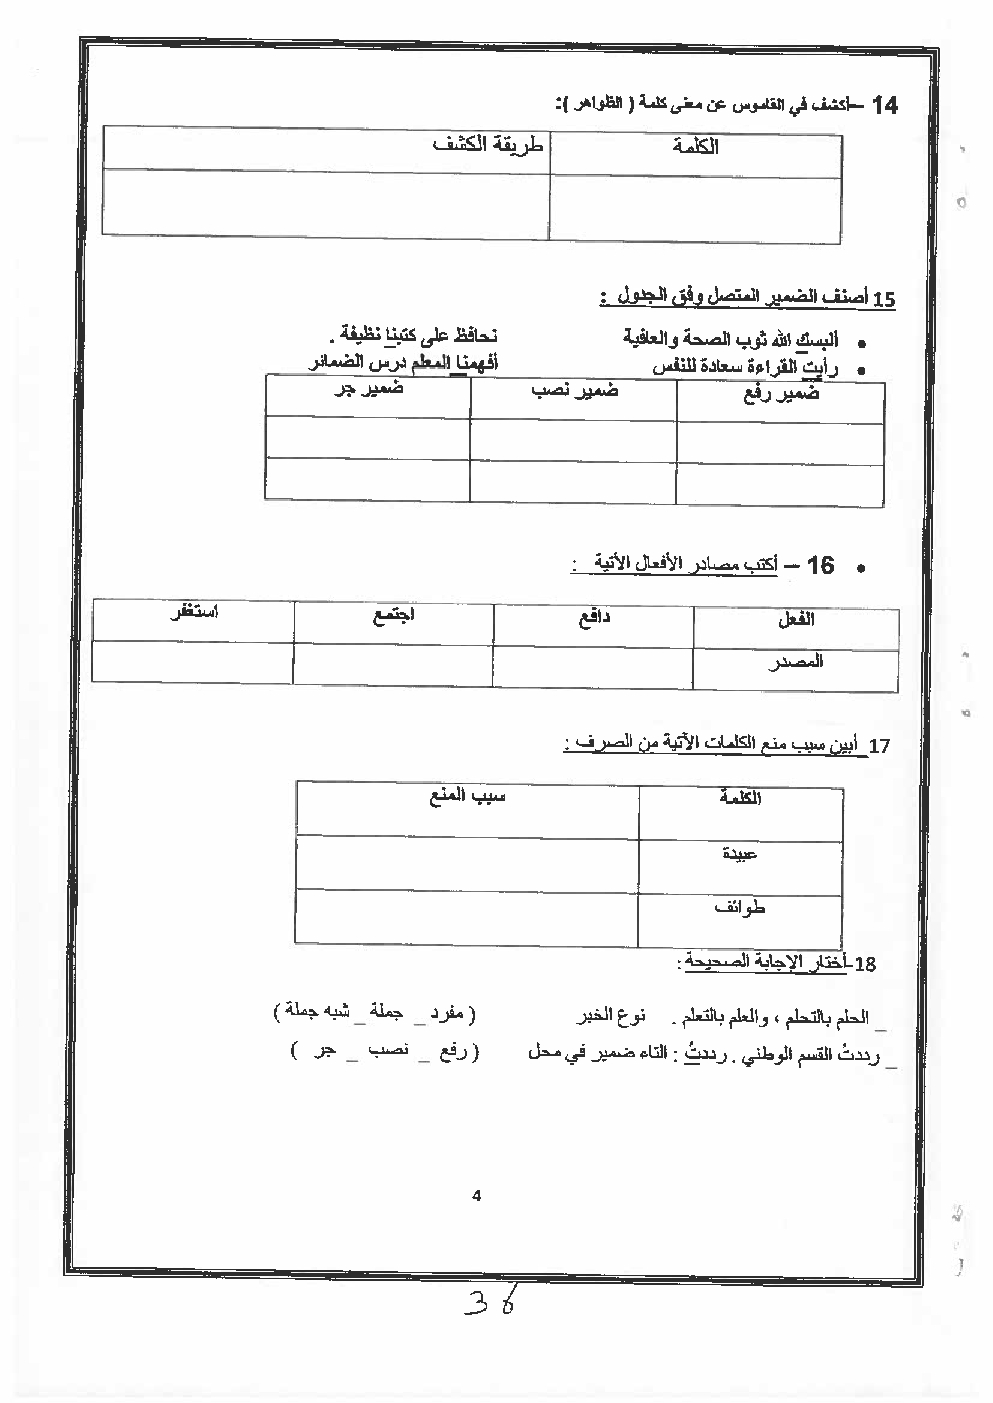 14 –أكشف في القاموس عن معنى كلمة ( الظواهر ):
الكلمة	طريقة الكشف
15 أصنف الضمير المتصل وفق الجدول :
• ألبسك الله ثوب الصحة والعافية	نحافظ على كتبنا نظيفة .
• رأيت القراءة سعادة للنفس	أفهمنا المعلم درس الضمائر
ضمير رفع	ضمير نصب	ضمير جر
• 16 – أكتب مصادر الأفعال الآتية :
الفعل	دافع	اجتمع	استغفر
المصدر
17_أبين سبب منع الكلمات الآتية من الصرف :
الكلمة	سبب المنع
عبيدة
طوائف
18-أختار الإجابة الصحيحة :
_ الحلم بالتحلم ، والعلم بالتعلم . نوع الخبر ( مفرد _ جملة _ شبه جملة )
_ رددتُ القسم الوطني . رددتُ : التاء ضمير في محل ( رفع _ نصب _ جر )
4
36